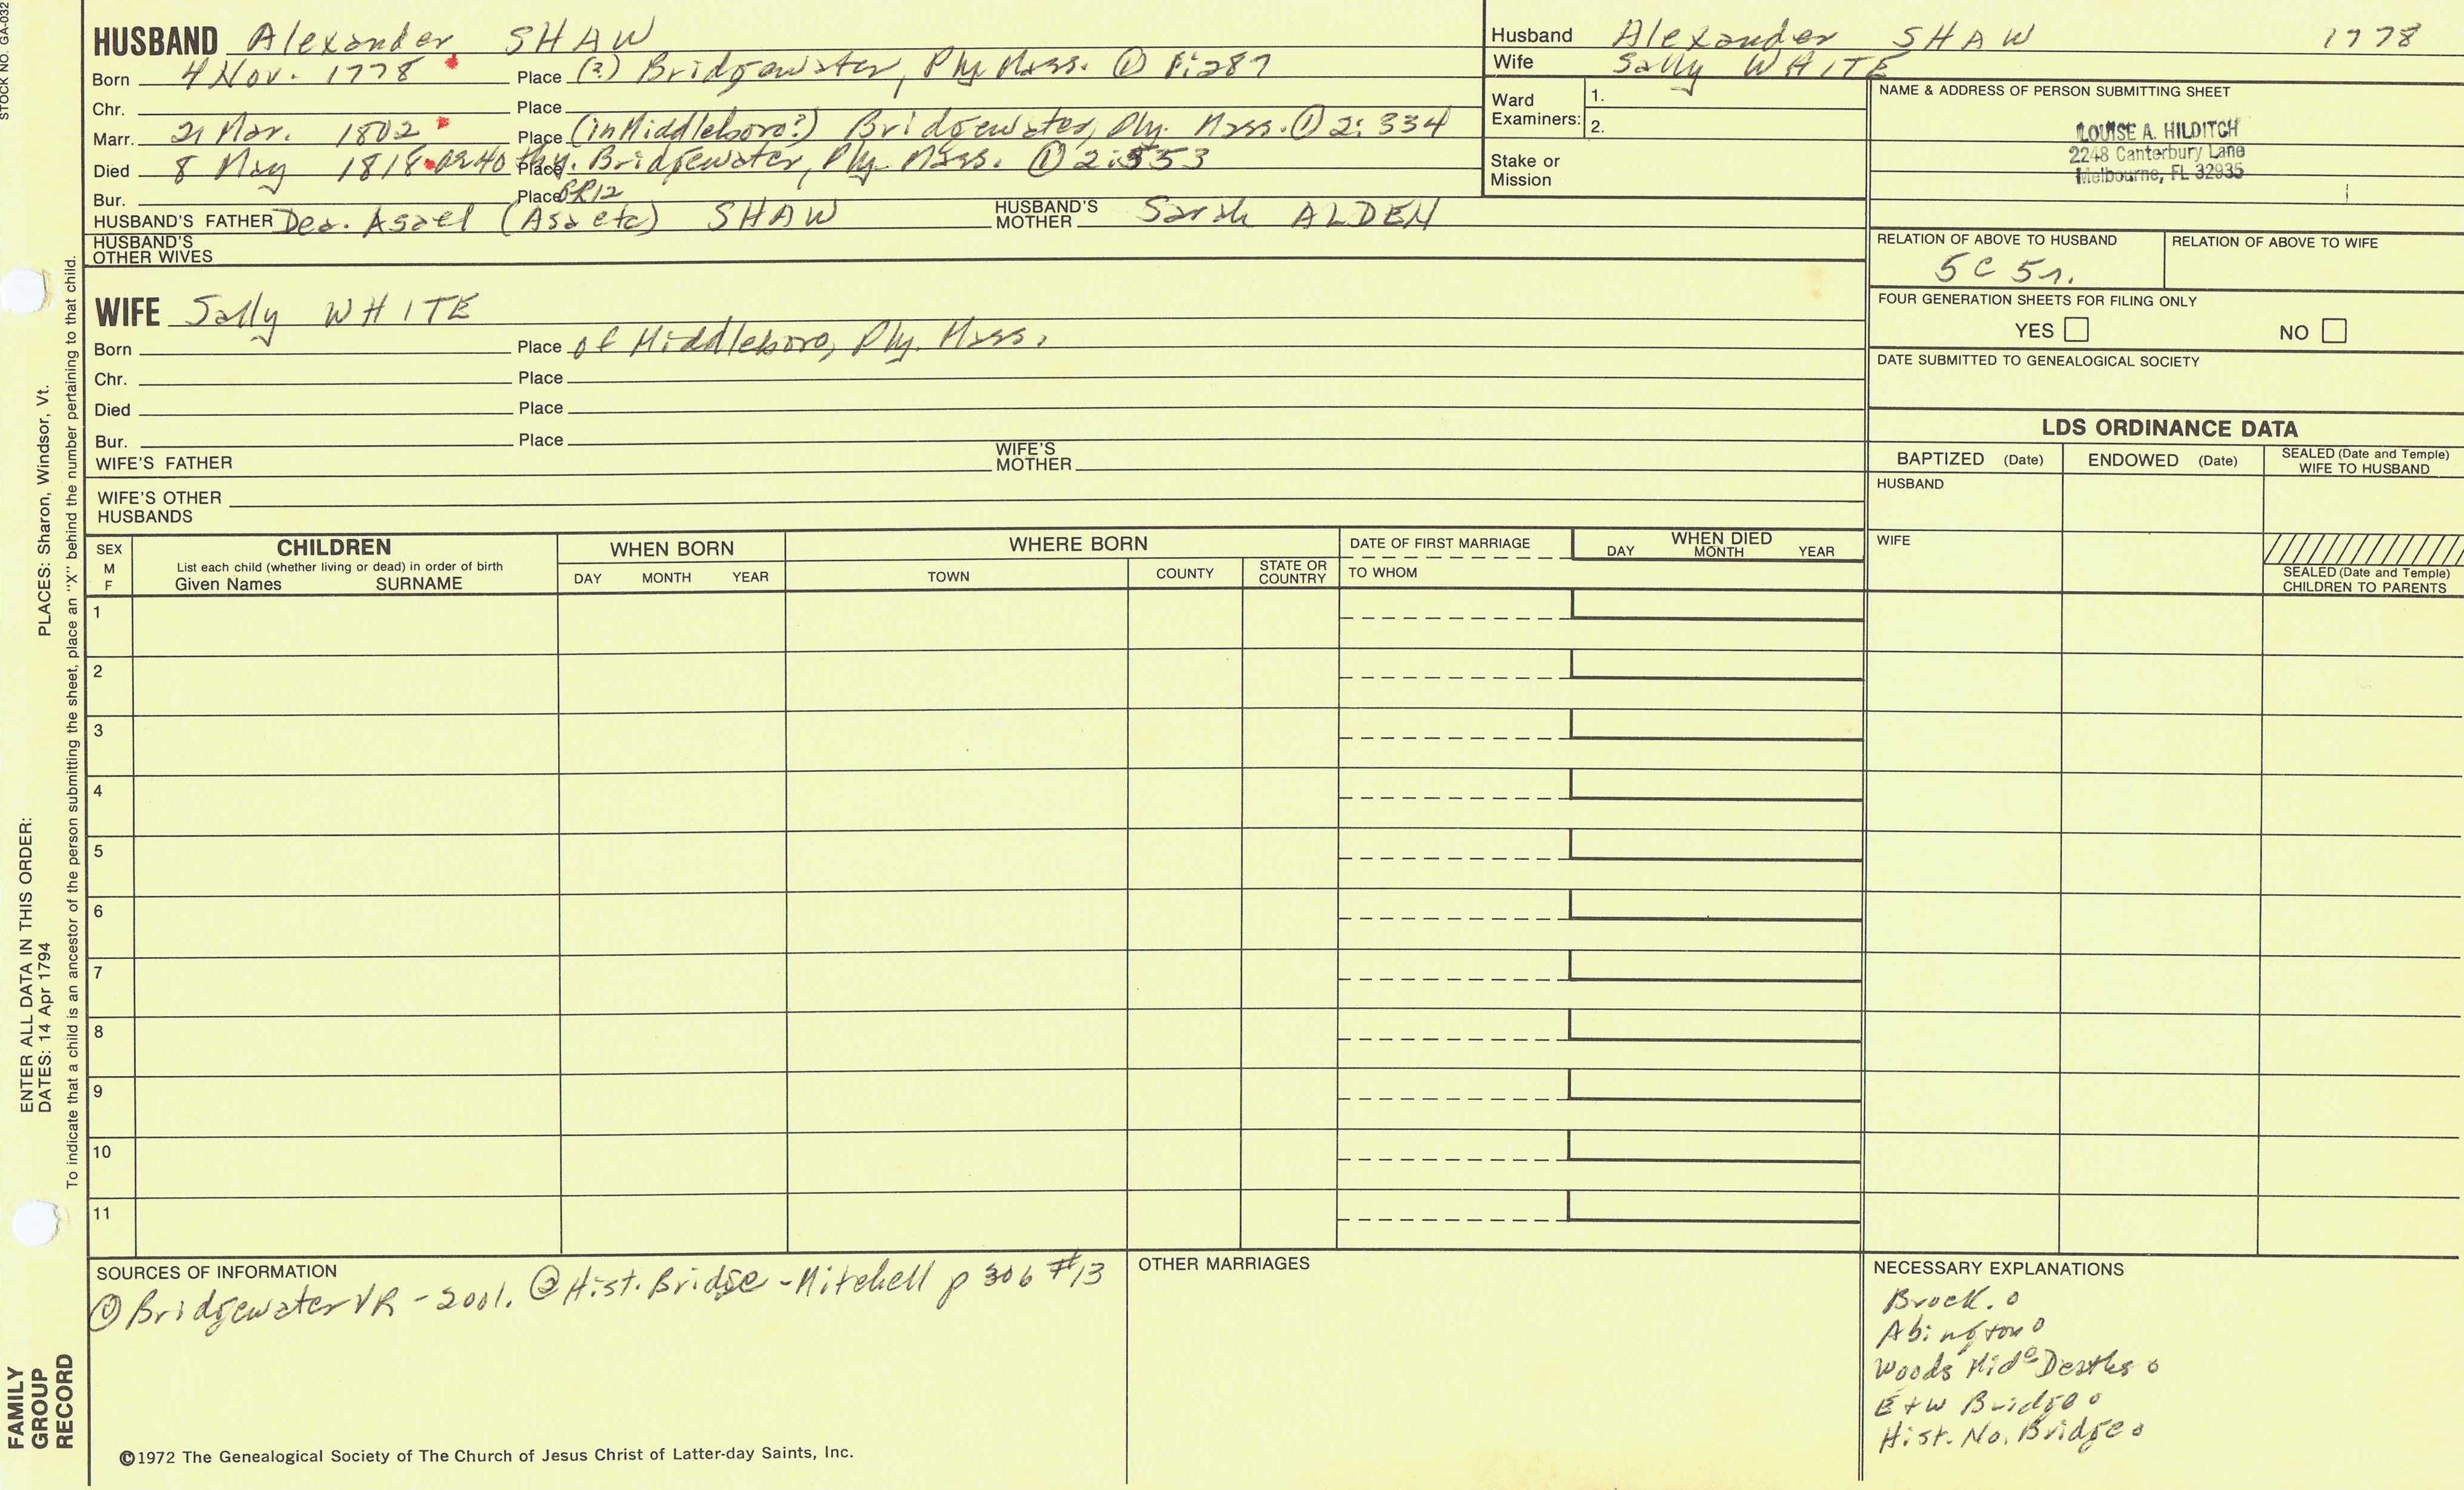 STOCK NO. GA-032
HUSBAND Alexander SHAW
Born 4 Nov. 1778 Place (?) Bridgewater, Ply. Mass. ① 1:287
Chr. Place
Marr. 21 Mar. 1802 Place (in Middleboro?) Bridgewater, Ply. Mass. ① 2:334
Died 8 May 1818 ae 40 Place Bridgewater, Ply. Mass. ① 2:553
Bur. Place PR12
HUSBAND'S FATHER Dea. Asael (Asa etc) SHAW HUSBAND'S MOTHER Sarah ALDEN
HUSBAND'S OTHER WIVES
Husband Alexander SHAW 1778
Wife Sally WHITE
Ward Examiners: 1.
2.
Stake or Mission
NAME & ADDRESS OF PERSON SUBMITTING SHEET
LOUISE A. HILDITCH
2248 Canterbury Lane
Melbourne, FL 32935
RELATION OF ABOVE TO HUSBAND RELATION OF ABOVE TO WIFE
5C 5r.
FOUR GENERATION SHEETS FOR FILING ONLY
YES NO
DATE SUBMITTED TO GENEALOGICAL SOCIETY
WIFE Sally WHITE
Born Place of Middleboro, Ply. Mass.
Chr. Place
Died Place
Bur. Place
WIFE'S FATHER WIFE'S MOTHER
WIFE'S OTHER HUSBANDS
LDS ORDINANCE DATA
BAPTIZED (Date) ENDOWED (Date) SEALED (Date and Temple) WIFE TO HUSBAND
HUSBAND
WIFE
SEALED (Date and Temple) CHILDREN TO PARENTS
SEX M F
CHILDREN
List each child (whether living or dead) in order of birth
Given Names SURNAME
WHEN BORN
DAY MONTH YEAR
WHERE BORN
TOWN COUNTY STATE OR COUNTRY
DATE OF FIRST MARRIAGE
TO WHOM
WHEN DIED
DAY MONTH YEAR
1
2
3
4
5
6
7
8
9
10
11
SOURCES OF INFORMATION
① Bridgewater VR - 2001. ② Hist. Bridge - Mitchell p 306 #13
OTHER MARRIAGES
NECESSARY EXPLANATIONS
Brock. o
Abington o
Woods Mid Deaths o
E + W Bridge o
Hist. No. Bridge o
©1972 The Genealogical Society of The Church of Jesus Christ of Latter-day Saints, Inc.
ENTER ALL DATA IN THIS ORDER:
DATES: 14 Apr 1794 PLACES: Sharon, Windsor, Vt.
To indicate that a child is an ancestor of the person submitting the sheet, place an "X" behind the number pertaining to that child.
FAMILY
GROUP
RECORD